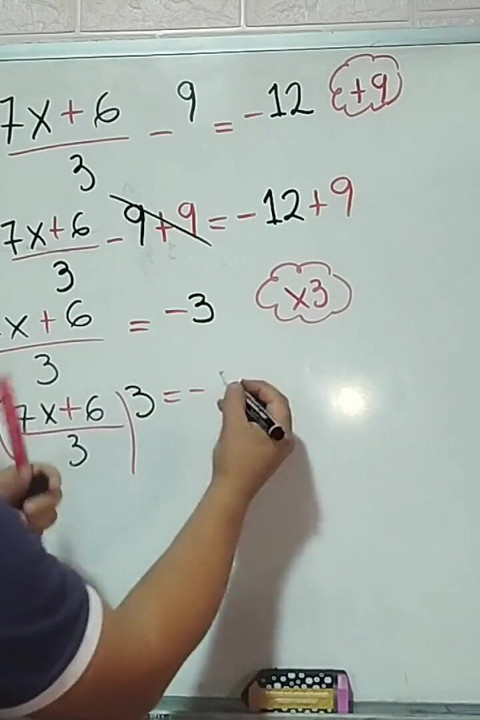 7x+6/3 - 9 = -12 +9
7x+6/3 - 9+9 = -12+9
x+6/3 = -3 x3
(7x+6/3)3 = -